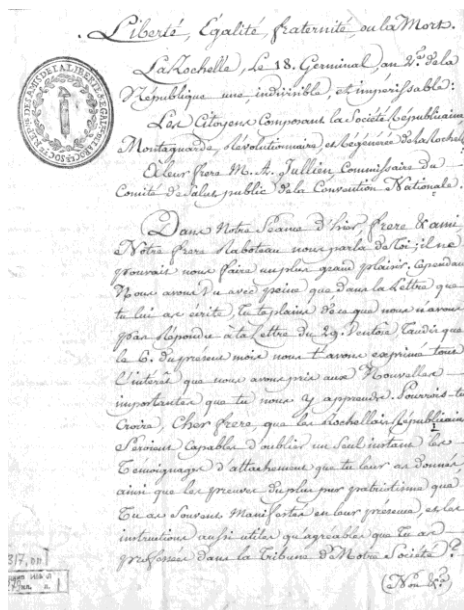 Liberté, Egalité, fraternité ou la Mort.
La Rochelle, Le 18. Germinal, an 2.e de la
République une, indivisible, et impérissable:
Les Citoyens Composant la Société Républicaine
Montagnarde, Révolutionnaire, et Régénérée de la Rochel
A Leur frere M. A. Jullien, Commissaire de
Comité de Salut public de la Convention Nationale.
Dans Notre Séance d'hier, frere & ami,
Notre frere Raboteau nous parla de toi; il ne
pouvait nous faire un plus grand plaisir. Cependan
Nous avons vu avec peine que dans la Lettre que
tu lui as écrite, Tu te plains de ce que nous n'avons
pas Répondu à ta Lettre du 29. Ventôse, Tandis que
le 6. du présent mois nous t'avons exprimé tous
L'intérêt que nous avons pris aux Nouvelles
importantes que tu nous y apprends. Pourrois-tu
Croire, Cher frere, que les Rochellois Républicain
Seroient Capables d'oublier un Seul instant les
Témoignages d'attachement que tu leur as donnés,
ainsi que les preuves du plus pur patriotisme que
Tu as Souvent Manifestés en leur présence, et les
instructions aussi utiles qu'agréables que tu as
professées dans la Tribune de Notre Société?
(Non &a)
317, on